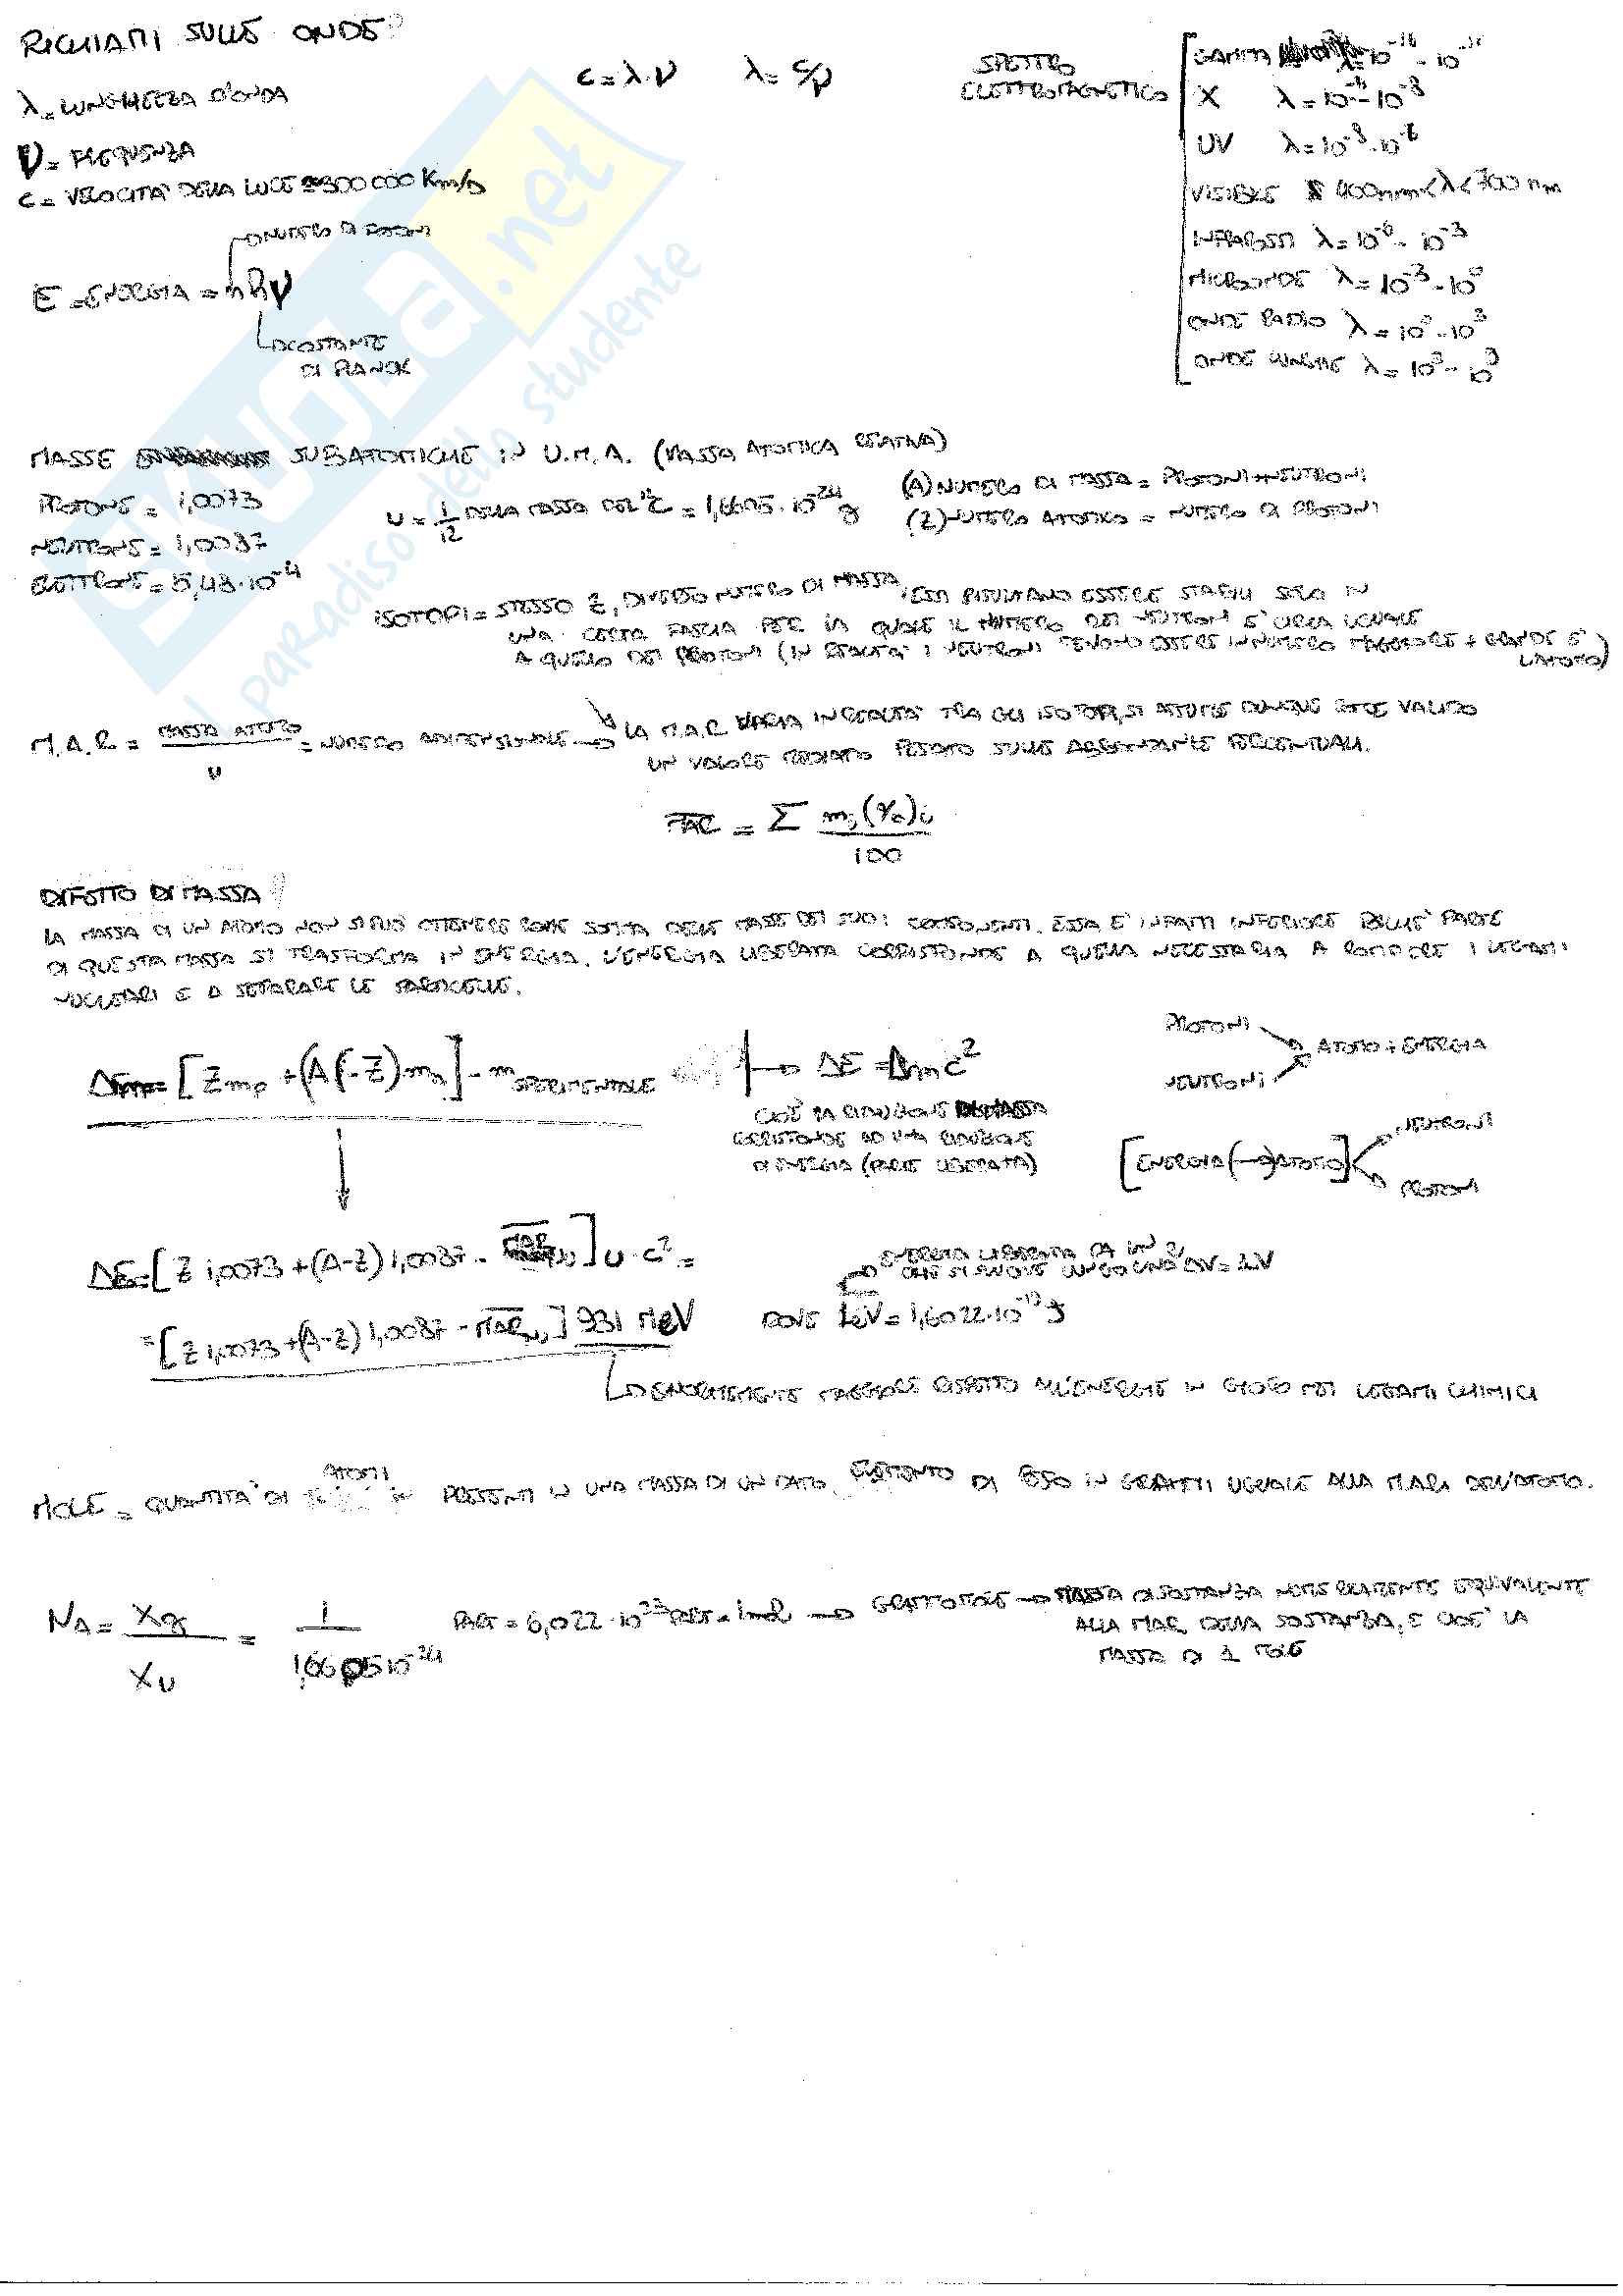 RICHIAMI SULLE ONDE
λ = LUNGHEZZA D'ONDA
ν = FREQUENZA
c = VELOCITA' DELLA LUCE ≃ 300 000 Km/s
c = λ·ν λ = c/ν
NUMERO DI FOTONI
E = ENERGIA = nhν
COSTANTE
DI PLANCK
SPETTRO
ELETTROMAGNETICO
GAMMA λ = 10⁻¹⁶ - 10⁻¹¹
X λ = 10⁻¹¹ - 10⁻⁸
UV λ = 10⁻⁸ - 10⁻⁶
VISIBILE 400nm < λ < 700 nm
INFRAROSSI λ = 10⁻⁶ - 10⁻³
MICROONDE λ = 10⁻³ - 10⁰
ONDE RADIO λ = 10⁰ - 10³
ONDE LUNGHE λ = 10³ -
MASSE SUBATOMICHE IN U.M.A. (MASSA ATOMICA RELATIVA)
PROTONE = 1,0073
NEUTRONE = 1,0087
ELETTRONE = 5,48·10⁻⁴
u = 1/12 DELLA MASSA DEL ¹²C = 1,6605·10⁻²⁴ g
(A) NUMERO DI MASSA = PROTONI + NEUTRONI
(Z) NUMERO ATOMICO = NUMERO DI PROTONI
ISOTOPI = STESSO Z, DIVERSO NUMERO DI MASSA; ESSI RISULTANO ESSERE STABILI SOLO IN
UNA CERTA FASCIA PER LA QUALE IL NUMERO DEI NEUTRONI E' CIRCA UGUALE
A QUELLO DEI PROTONI (IN REALTA' I NEUTRONI DEVONO ESSERE IN NUMERO MAGGIORE + GRANDE E'
L'ATOMO)
M.A.R = MASSA ATOMO / u = NUMERO ADIMENSIONALE → LA M.A.R VARIA IN REALTA' TRA GLI ISOTOPI, SI ASSUME DUNQUE VALIDO
UN VALORE MEDIATO PESATO SULLE ABBONDANZE PERCENTUALI.
MAR = Σ mᵢ(%)ᵢ / 100
DIFETTO DI MASSA
LA MASSA DI UN ATOMO NON SI PUO' OTTENERE COME SOMMA DELLE MASSE DEI SUOI COMPONENTI. ESSA E' INFATTI INFERIORE POICHE' PARTE
DI QUESTA MASSA SI TRASFORMA IN ENERGIA. L'ENERGIA LIBERATA CORRISPONDE A QUELLA NECESSARIA A ROMPERE I LEGAMI
NUCLEARI E A SEPARARE LE PARTICELLE.
Δm = [Z mp + (A-Z)·mn] - m SPERIMENTALE → ΔE = Δmc²
CIOE' LA RIDUZIONE DI MASSA
CORRISPONDE AD UNA RIDUZIONE
DI ENERGIA (PARTE LIBERATA)
PROTONI
NEUTRONI
ATOMO + ENERGIA
[ENERGIA (→) ATOMO]
NEUTRONI
PROTONI
ΔE = [Z 1,0073 + (A-Z) 1,0087 - MAR] u·c² =
= [Z 1,0073 + (A-Z) 1,0087 - MAR] 931 MeV
ENERGIA LIBERATA DA UN e⁻
CHE SI MUOVE LUNGO UNA ΔV = 1V
DOVE 1eV = 1,6022·10⁻¹⁹ J
ENORMEMENTE MAGGIORE RISPETTO ALL'ENERGIE IN GIOCO NEI LEGAMI CHIMICI
MOLE = QUANTITA' DI ATOMI PRESENTI IN UNA MASSA DI UN DATO ELEMENTO DI ESSO IN GRAMMI UGUALE ALLA MAR DELL'ATOMO.
NA = Xg / Xu = 1 / 1,6605 10⁻²⁴ PART = 6,022·10²³ PART = 1mol → GRAMMOMOLE → MASSA DI SOSTANZA NUMERICAMENTE EQUIVALENTE
ALLA MAR DELLA SOSTANZA, E CIOE' LA
MASSA DI 1 MOLE
skuola.net
il paradiso dello studente